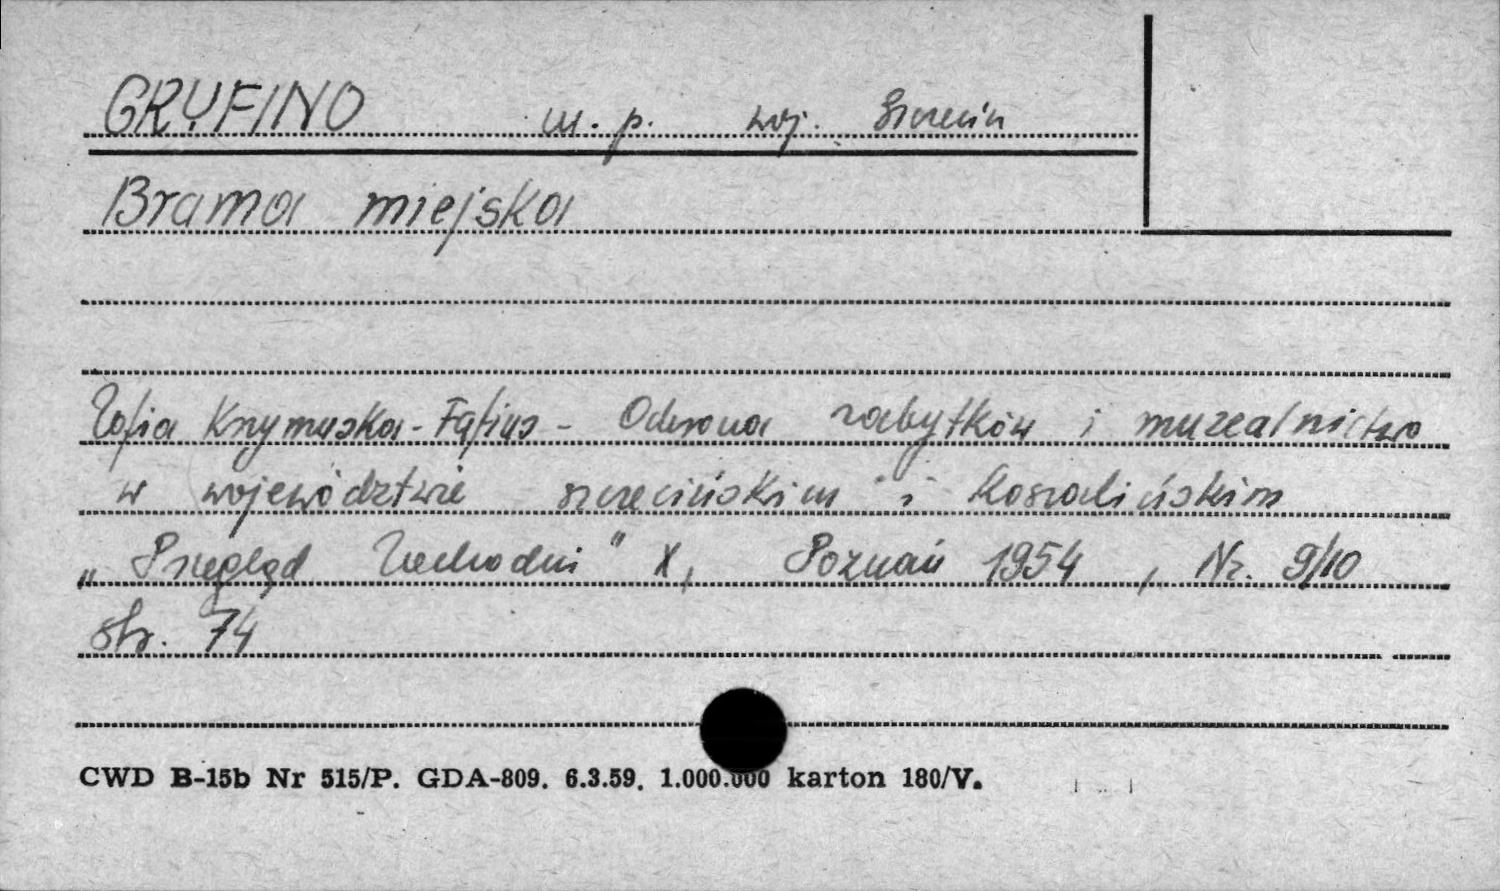 GRYFINO m. p. woj. Szczecin
Brama miejska
Zofia Krzymuska-Fafius - Ochrona zabytków i muzealnictwo
w województwie szczecińskim i koszalińskim
„Przegląd Zachodni" X, Poznań 1954, Nr. 9/10
str. 74
CWD B-15b Nr 515/P. GDA-809. 6.3.59. 1.000.000 karton 180/V.